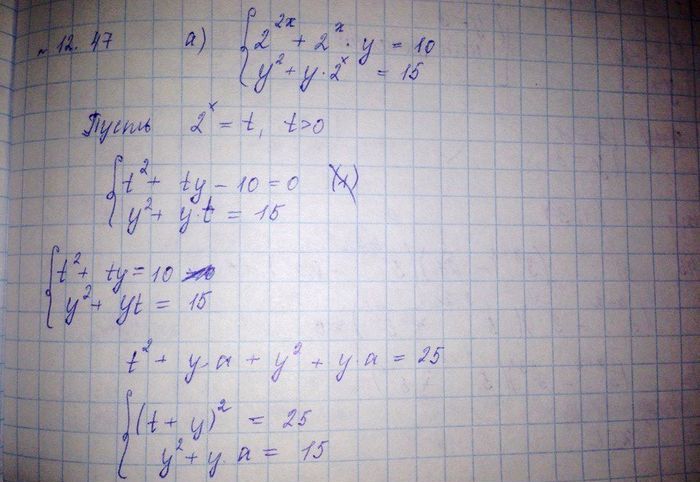 № 12.47 а) { 2^{2x} + 2^x · y = 10
y^2 + y · 2^x = 15
Пусть 2^x = t, t>0
{ t^2 + ty - 10 = 0
y^2 + y·t = 15
{ t^2 + ty = 10
y^2 + yt = 15
t^2 + y·a + y^2 + y·a = 25
{ (t + y)^2 = 25
y^2 + y·a = 15